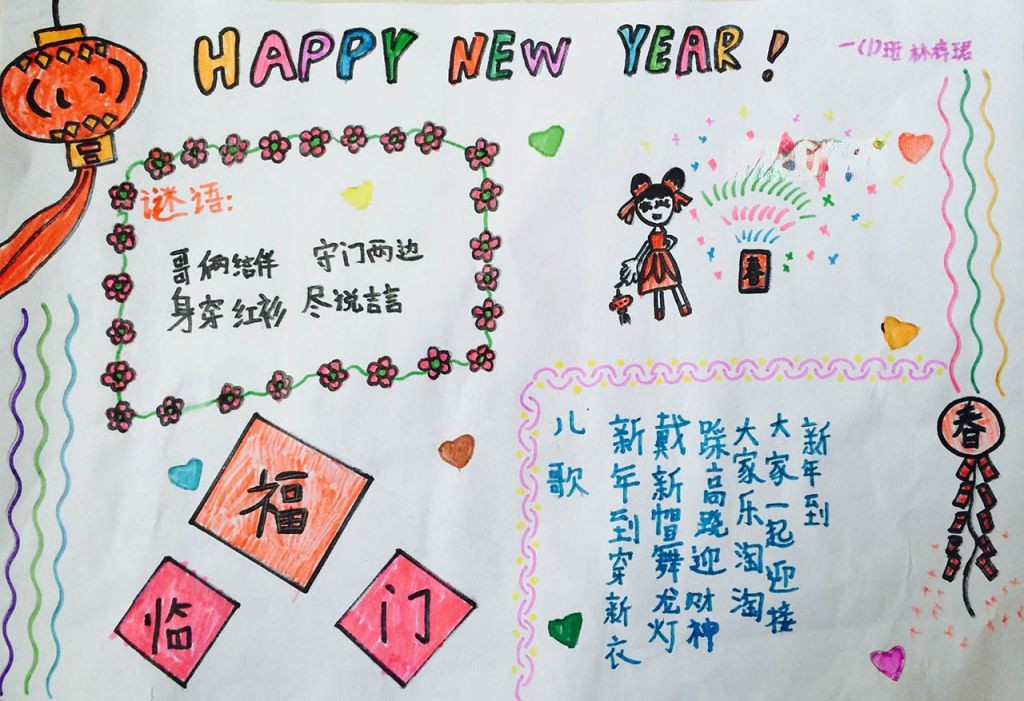 HAPPY NEW YEAR!
一(1)班 林
谜语:
哥俩结伴 守门两边
身穿红衫 尽说吉言
春
福
临
门
儿歌
新年到穿新衣
戴新帽舞龙灯
踩高跷迎财神
大家乐淘淘
大家一起迎接
新年到
春